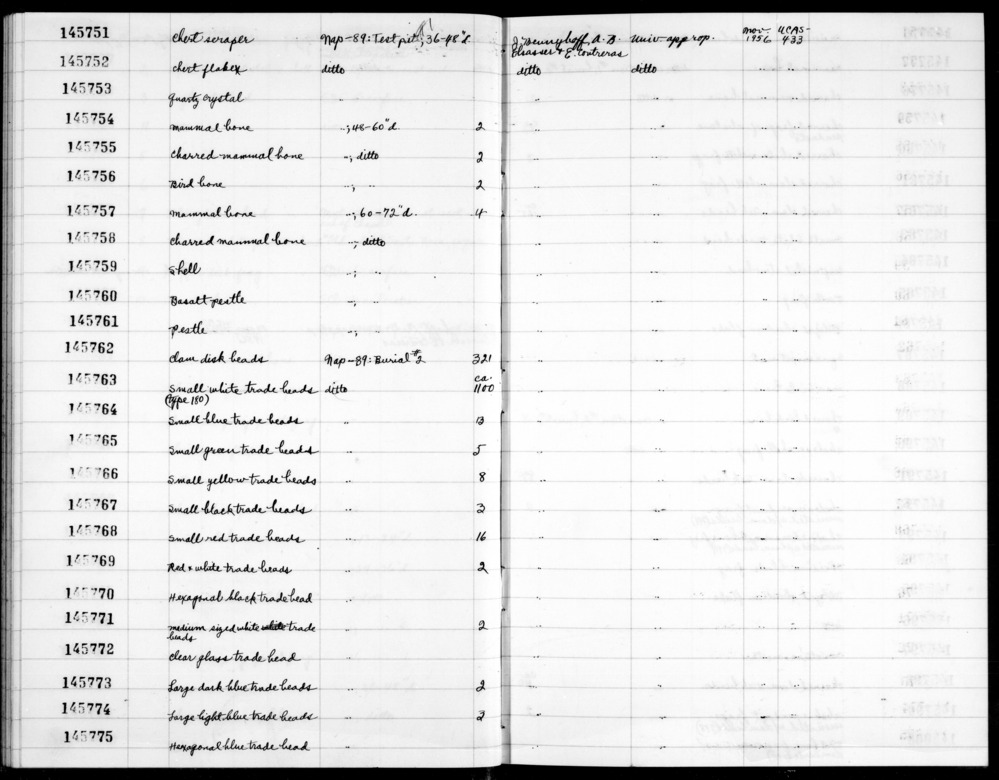 145751 Chert scraper Nap-89: Test pit 1, 36-48"d. J. Bennyhoff, A. B. Univ. approp. Nov. UCAS-
Elsasser & E. Contreras 1956 433
145752 chert flakes ditto ditto ditto " "
145753 quartz crystal " " " " "
145754 mammal bone "; 48-60"d. 2 " " " "
145755 Charred mammal bone "; ditto 2 " " " "
145756 Bird bone "; " 2 " " " "
145757 mammal bone "; 60-72"d. 4 " " " "
145758 Charred mammal bone "; ditto " " " "
145759 Shell "; " " " " "
145760 Basalt pestle "; " " " "
145761 Pestle "; " " " "
145762 Clam disk beads Nap-89: Burial #2 321 " " " "
145763 Small white trade beads ditto ca. 1100 " " " "
(type 180)
145764 Small blue trade beads " 13 " " " "
145765 Small green trade beads " 5 " " " "
145766 Small yellow trade beads " 8 " " " "
145767 Small black trade beads " 3 " " " "
145768 Small red trade beads " 16 " " " "
145769 Red & white trade beads " 2 " " " "
145770 Hexagonal black trade bead " " " " "
145771 medium sized white trade " 2 " " " "
beads
145772 Clear glass trade bead " " " " "
145773 Large dark blue trade beads " 2 " " " "
145774 Large light blue trade beads " 2 " " " "
145775 Hexagonal blue trade bead " " " " "